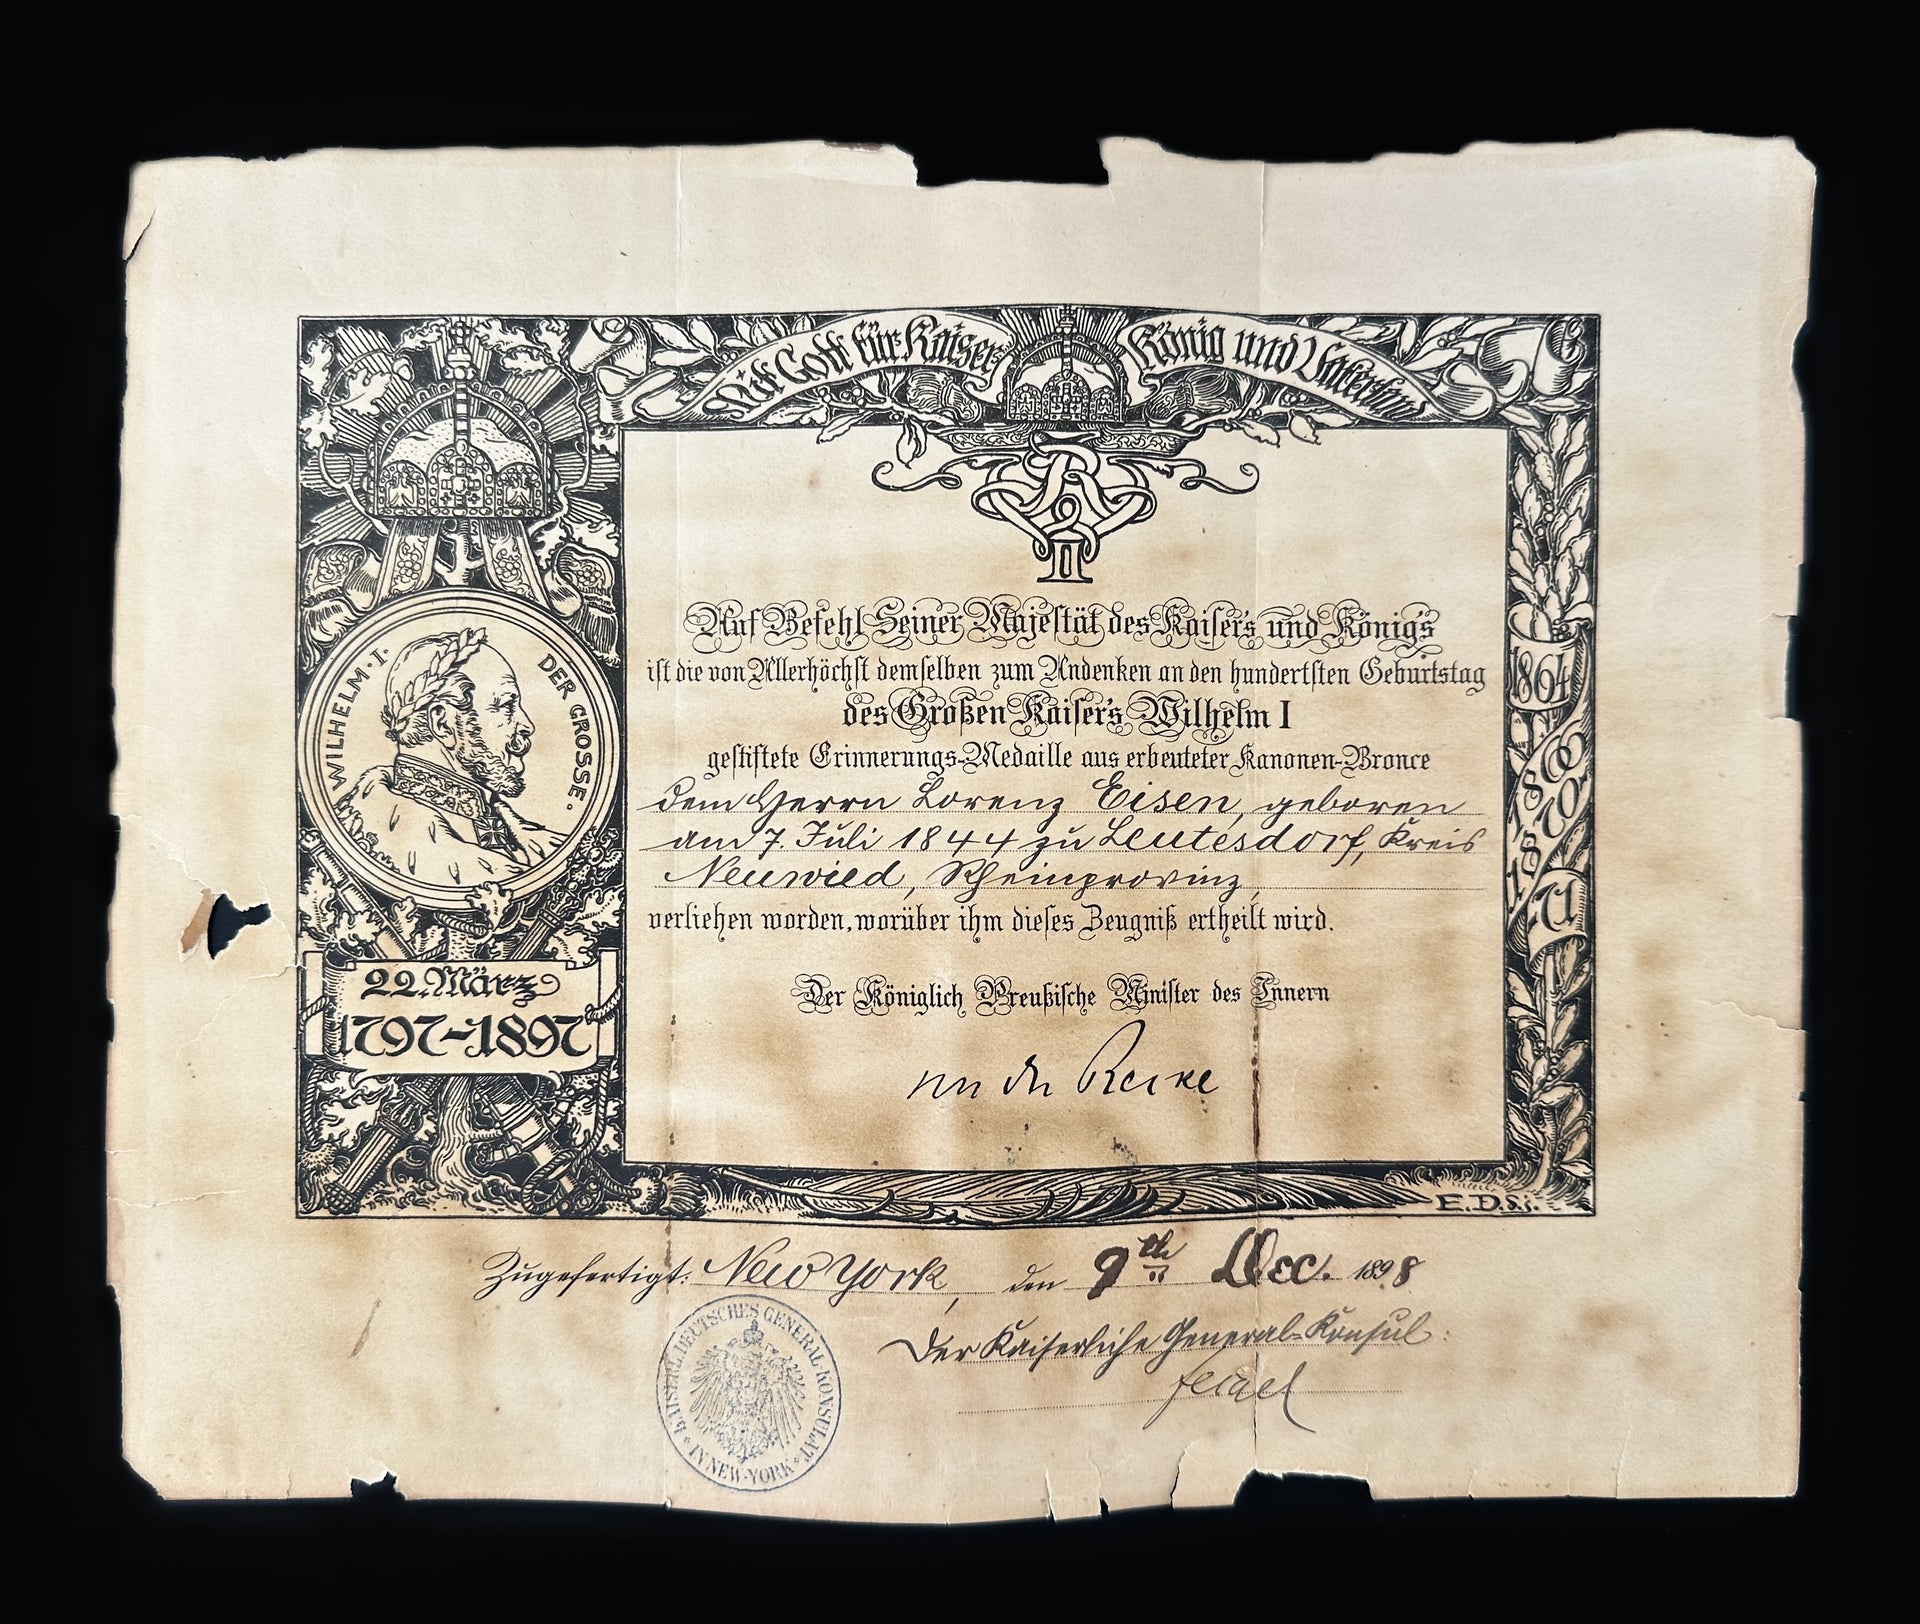 Mit Gott für Kaiser König und Vaterland
WILHELM·I· DER GROSSE.
22. März
1797-1897
1864
1866
1870
1871
W R
II
Auf Befehl Seiner Majestät des Kaiser's und König's
ist die von Allerhöchst demselben zum Andenken an den hundertsten Geburtstag
des Großen Kaiser's Wilhelm I
gestiftete Erinnerungs-Medaille aus erbeuteter Kanonen-Bronce
dem Herrn Lorenz Eisen, geboren
am 7. Juli 1844 zu Leutesdorf, Kreis
Neuwied, Rheinprovinz,
verliehen worden, worüber ihm dieses Zeugniß ertheilt wird.
Der Königlich Preußische Minister des Innern
von der Recke
E.D.d.j.
Zugefertigt: New York, den 9th Dec. 1898
Der Kaiserliche General-Konsul:
KAISERL. DEUTSCHES GENERAL-KONSULAT * IN NEW-YORK *